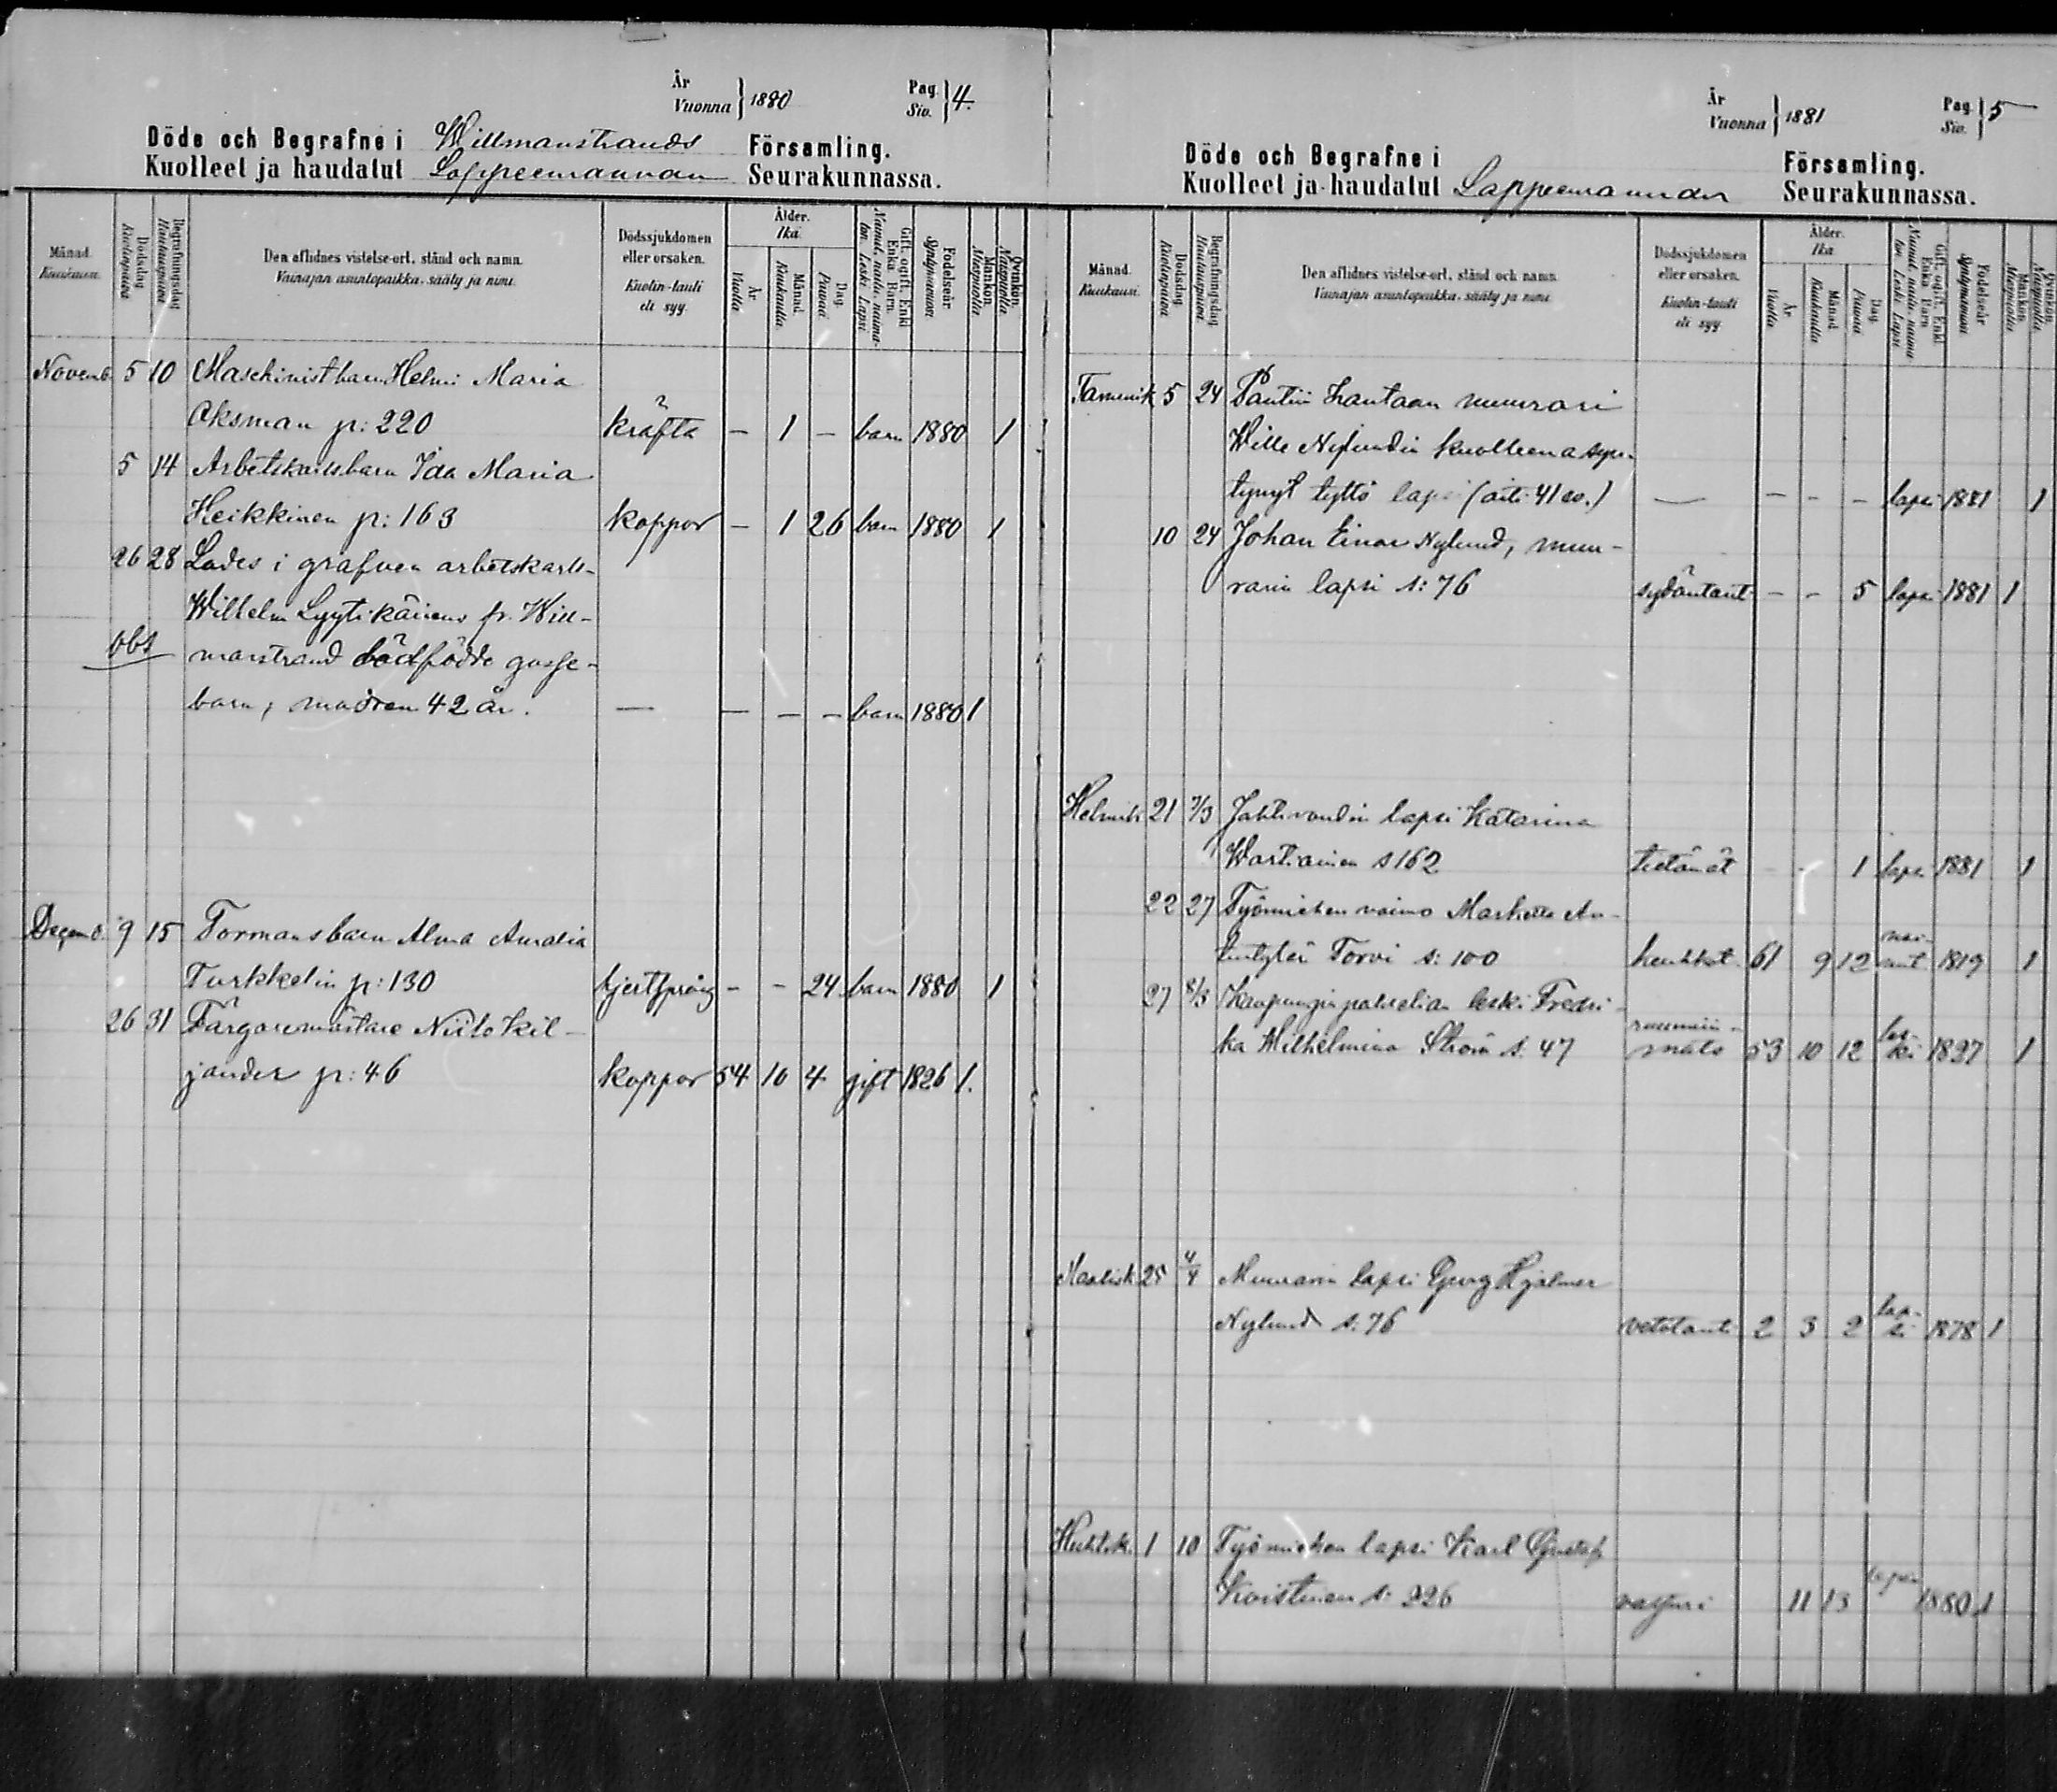 År
Vuonna } 1880
Pag.
Siv. } 4.
Döde och Begrafne i Willmanstrands Församling.
Kuolleet ja haudatut Lappeenrannan Seurakunnassa.
Månad. Kuukausi.
Dödsdag Kuolinpäivä
Begrafningsdag Hautauspäivä
Den aflidnes vistelse-ort, stånd och namn.
Vainajan asuntopaikka, sääty ja nimi.
Dödssjukdomen eller orsaken.
Kuolin-tauti eli syy.
Ålder. Ikä.
År Vuotta
Månad. Kuukautta
Dag. Päivää
Gift, ogift, Enkl. Enka Barn.
Födelseår Syntymävuosi
Mankön. Miespuolia
Qvinkön. Naispuolia
Novemb. 5 10 Maschinist barn Helmi Maria
Oksman p: 220 kräfta — 1 — barn 1880 1
5 14 Arbetskarlsbarn Ida Maria
Heikkinen p: 163 koppor — 1 26 barn 1880 1
26 28 Lades i grafven arbetskarls-
Wilhelm Lyytikäinens fr. Will-
obs manstrand dödfödde gosse-
barn, modren 42 år. — — — — barn 1880 1
Decemb. 9 15 Formansbarn Alma Amalia
Turkkelin p: 130 hjertsprång - - 24 barn 1880 1
26 31 Färgaremästare Niilo Kil-
jander p: 46 koppor 54 10 4 gift 1826 1.
År
Vuonna } 1881
Pag.
Siv. } 5
Döde och Begrafne i Församling.
Kuolleet ja haudatut Lappeenrannan Seurakunnassa.
Månad. Kuukausi.
Dödsdag Kuolinpäivä
Begrafningsdag Hautauspäivä
Den aflidnes vistelse-ort, stånd och namn.
Vainajan asuntopaikka, sääty ja nimi.
Dödssjukdomen eller orsaken.
Kuolin-tauti eli syy.
Ålder. Ikä.
År Vuotta
Månad. Kuukautta
Dag. Päivää
Gift, ogift, Enkl. Enka Barn
Födelseår Syntymävuosi
Mankön. Miespuolia
Qvinkön. Naispuolia
Tammik 5 24 Pantiin hautaan muurari
Wille Nylundin kuolleena syn-
tynyt tyttö lapsi (äiti 41 v.) — - - - lapsi 1881 1
10 24 Johan Einar Nylund, muu-
rarin lapsi s: 76 sydäntaut - - 5 lapsi 1881 1
Helmik 21 7/3 Jahtivoudin lapsi Katarina
Wartiainen s 162 tietämät - - 1 lapsi 1881 1
22 27 Työmiehen vaimo Marketta An-
tintytär Torvi s: 100 keuhkot. 61 9 12 nai- nut 1819 1
27 8/3 Kaupungin palvelian leski Fredri-
ka Wilhelmina Ström s. 47 ruumiin- mato 53 10 12 les- ki 1827 1
Maalisk 25 4/4 Muurarin lapsi Georg Hjalmar
Nylund s: 76 vetotauti 2 3 2 lap- si 1878 1
Huhtik. 1 10 Työmiehen lapsi Karl Gustaf
Koistinen s: 226 11 13 lapsi 1880 1